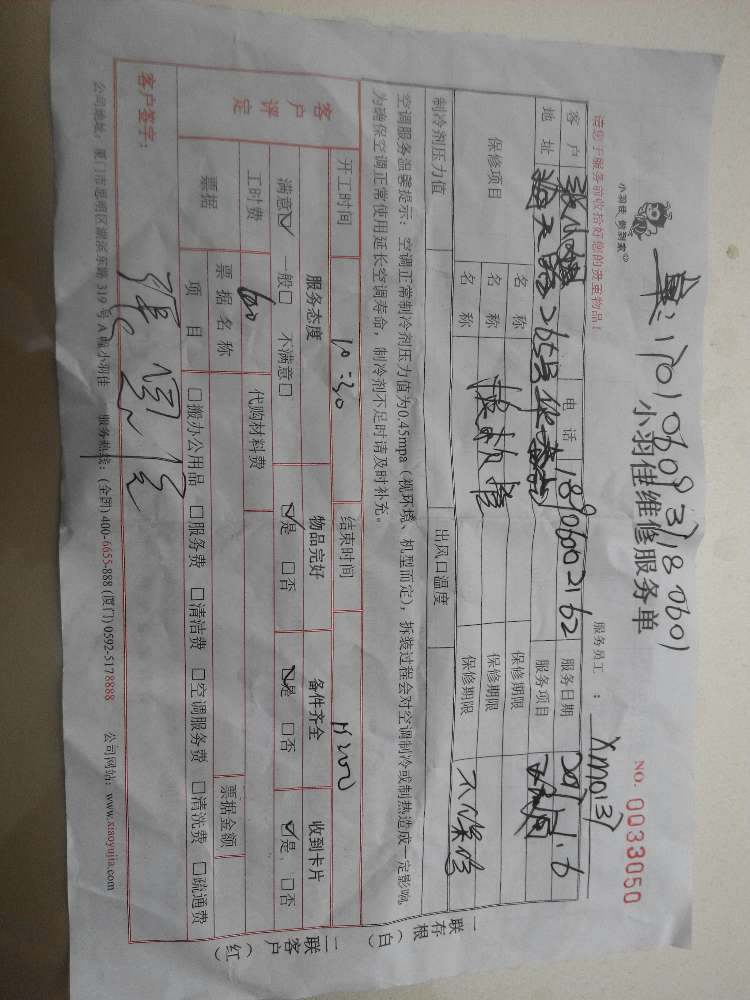 小羽佳 做到家
单:170106093718060
小羽佳维修服务单
NO. 0033050
请您于服务前收拾好您的贵重物品!
服务员工 : XM0137
客户
电话 18906002162
服务日期 2017.1.6
地址
服务项目
保修项目
名称
保修期限
名称
保修期限
名称
保修期限 不保修
制冷剂压力值
出风口温度
空调服务温馨提示:空调正常制冷剂压力值为0.45mpa(视环境、机型而定),拆装过程会对空调制冷或制热造成一定影响,
为确保空调正常使用延长空调寿命,制冷剂不足时请及时补充。
开工时间 10:30
结束时间
客户评定
服务态度
物品完好
备件齐全
收到卡片
满意☑ 一般□ 不满意□
☑是 □否
☑是 □否
☑是 □否
工时费
代购材料费
票据
票据名称
票据金额
项目 □搬办公用品 □服务费 □清洁费 □空调服务费 □清洗费 □疏通费
客户签字:
公司地址:厦门市思明区湖滨东路 319 号 A 幢小羽佳 服务热线:(全国) 400-6655-888 (厦门) 0592-5178888 公司网站:www.xiaoyujia.com
一联存根(白)
二联客户(红)